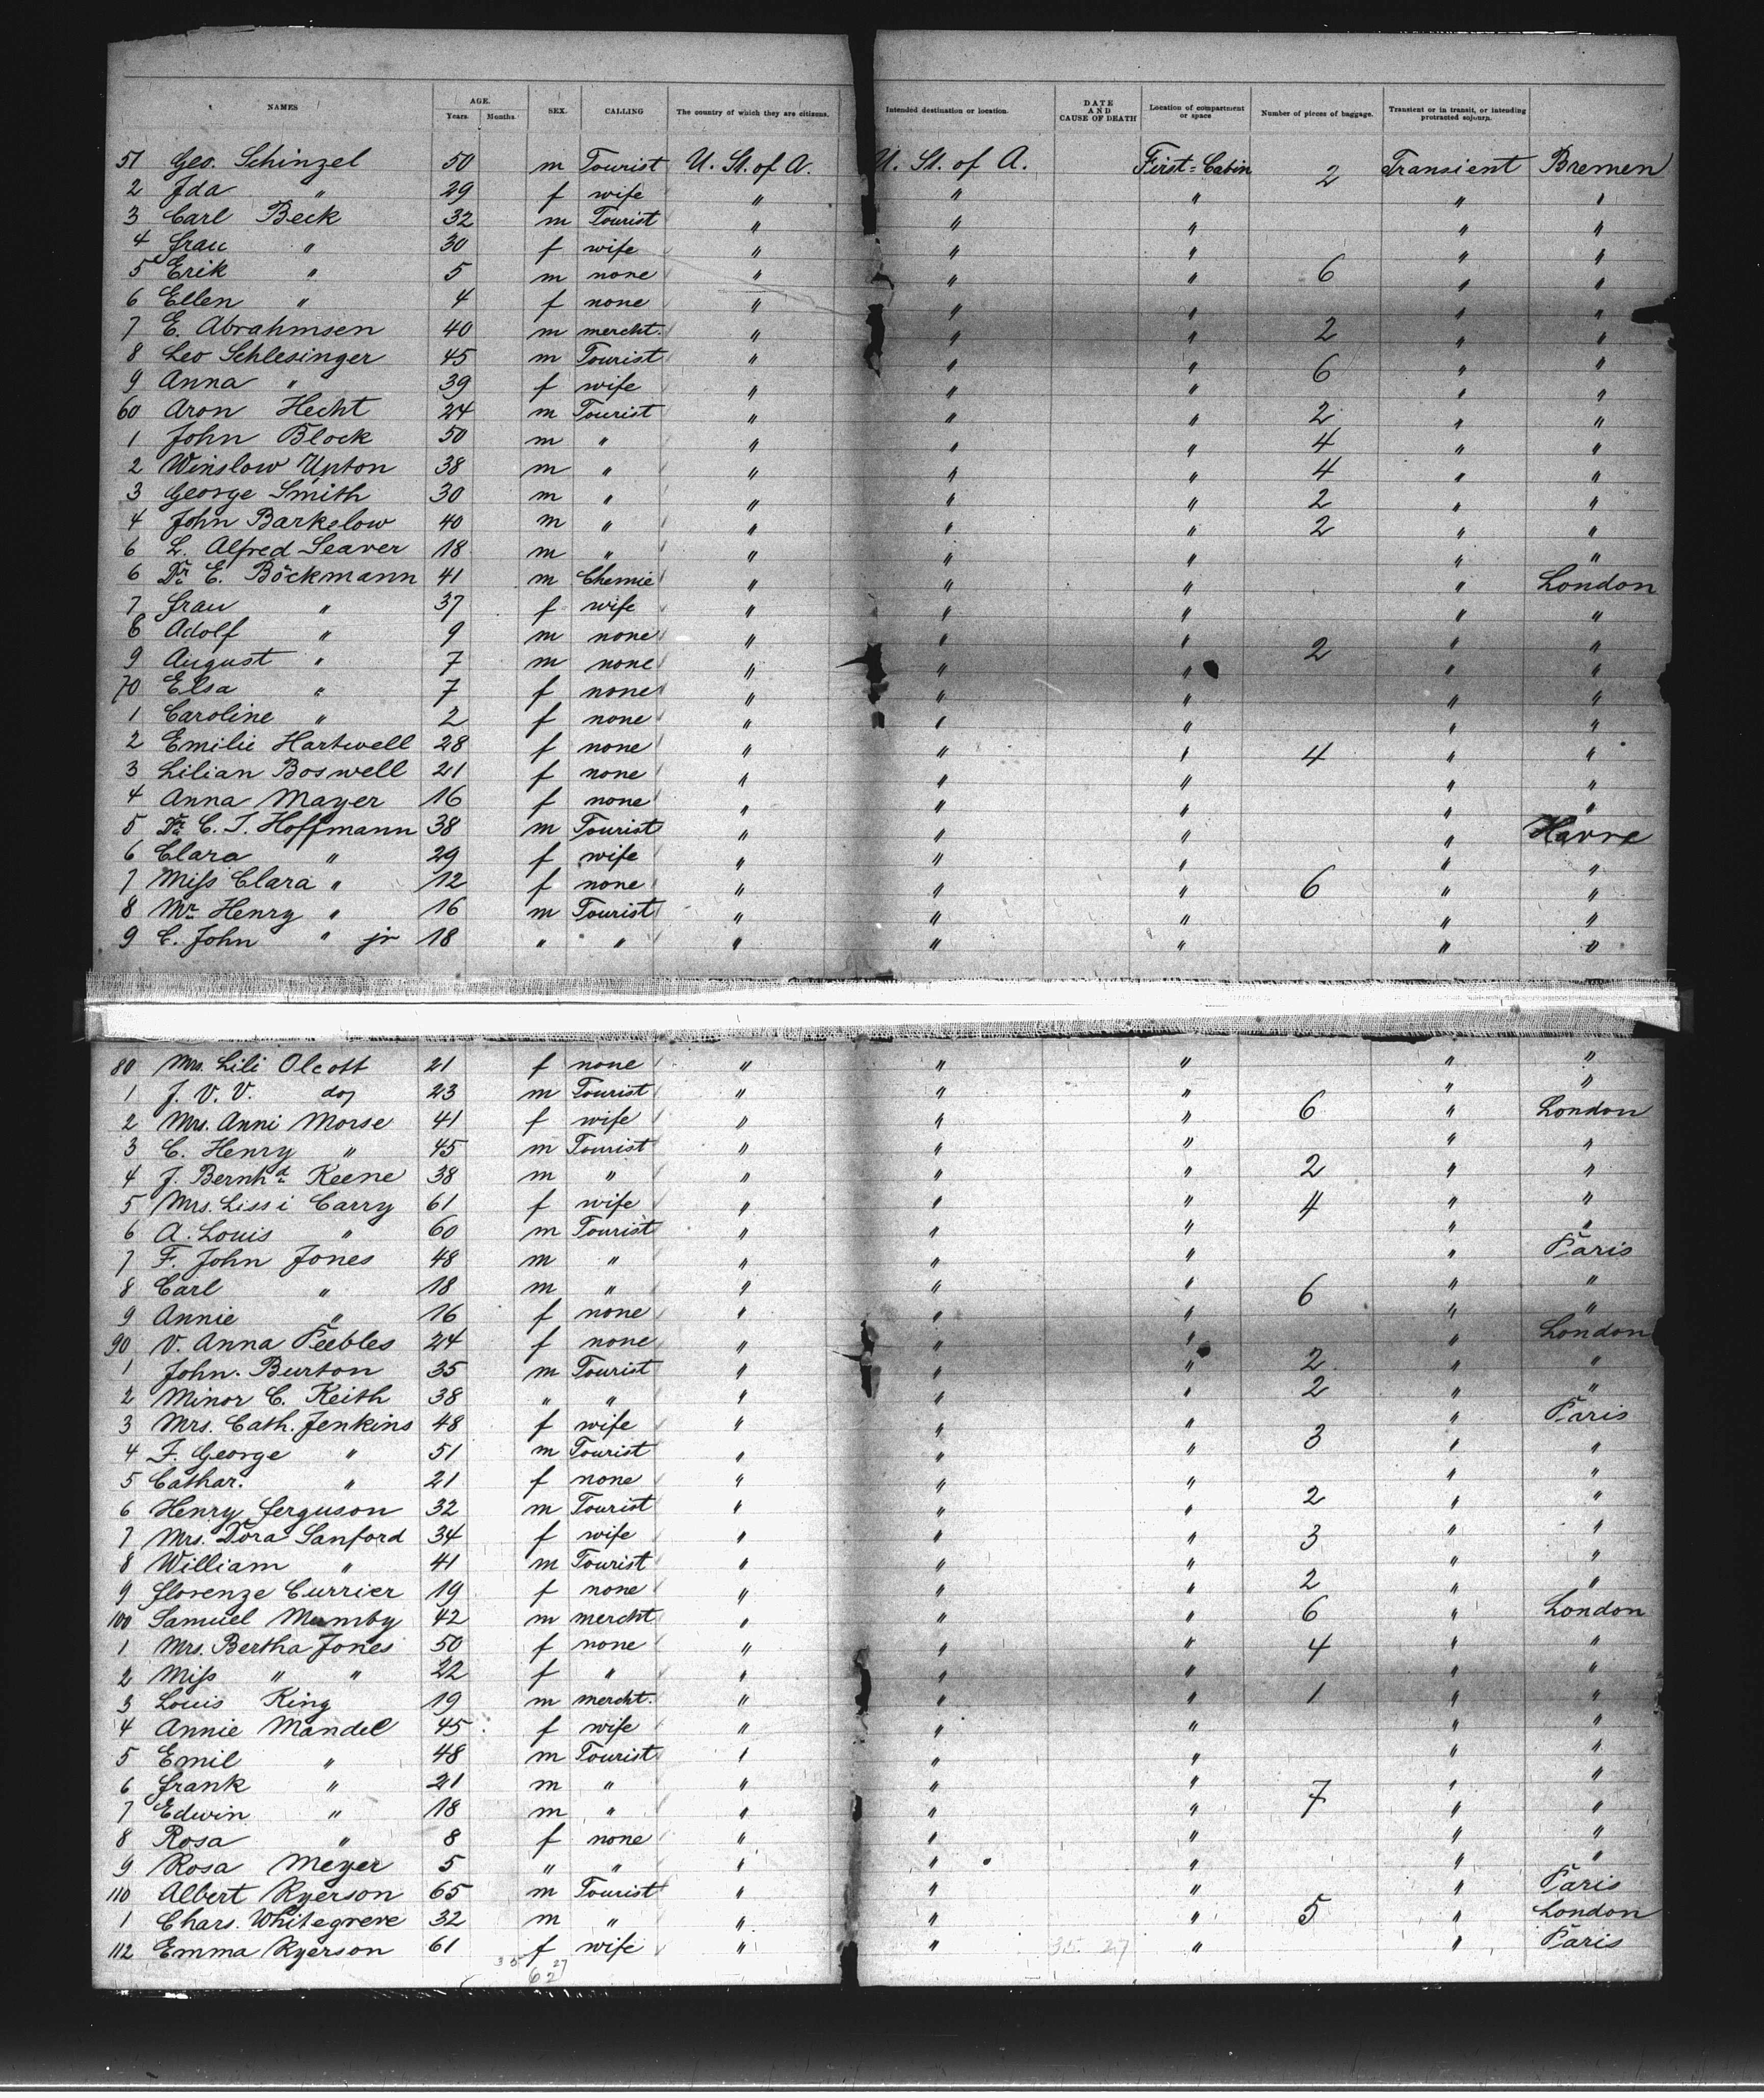 NAMES AGE. Years. Months. SEX. CALLING The country of which they are citizens. Intended destination or location. DATE AND CAUSE OF DEATH Location of compartment or space Number of pieces of baggage. Transient or in transit, or intending protracted sojourn.
51 Geo. Schinzel 50 m Tourist U. St. of A. U. St. of A. First-Cabin 2 Transient Bremen
2 Ida " 29 f wife " " " " "
3 Carl Beck 32 m Tourist " " " " "
4 frau " 30 f wife " " " " "
5 Erik " 5 m none " " " 6 " "
6 Ellen " 4 f none " " " " "
7 E. Abrahmsen 40 m mercht. " " " 2 " "
8 Leo Schlesinger 45 m Tourist " " " 6 " "
9 Anna " 39 f wife " " " " "
60 Aron Hecht 24 m Tourist " " " 2 " "
1 John Block 50 m " " " " 4 " "
2 Winslow Upton 38 m " " " " 4 " "
3 George Smith 30 m " " " " 2 " "
4 John Barkelow 40 m " " " " 2 " "
6 L. Alfred Seaver 18 m " " " " " "
6 Dr. E. Böckmann 41 m Chemie " " " " London
7 frau " 37 f wife " " " " "
8 Adolf " 9 m none " " " 2 " "
9 August " 7 m none " " " " "
70 Elsa " 7 f none " " " " "
1 Caroline " 2 f none " " " " "
2 Emilie Hartwell 28 f none " " " 4 " "
3 Lilian Boswell 21 f none " " " " "
4 Anna Mayer 16 f none " " " " "
5 Dr. C. J. Hoffmann 38 m Tourist " " " " Havre
6 Clara " 29 f wife " " " " "
7 Miss Clara " 12 f none " " " 6 " "
8 Mr. Henry " 16 m Tourist " " " " "
9 C. John " jr 18 " " " " " " "
80 Mrs. Lili Olcott 21 f none " " " " "
1 J. V. V. do, 23 m Tourist " " " " "
2 Mrs. Anni Morse 41 f wife " " " 6 " London
3 C. Henry " 45 m Tourist " " " " "
4 J. Bernhd. Keene 38 m " " " " 2 " "
5 Mrs. Lissi Carry 61 f wife " " " 4 " "
6 A. Louis " 60 m Tourist " " " " "
7 F. John Jones 48 m " " " " " Paris
8 Carl " 18 m " " " " 6 " "
9 Annie " 16 f none " " " " "
90 V. Anna Peebles 24 f none " " " " London
1 John. Burton 35 m Tourist " " " 2 " "
2 Minor C. Keith 38 " " " " " 2 " "
3 Mrs. Cath. Jenkins 48 f wife " " " " Paris
4 F. George " 51 m Tourist " " " 3 " "
5 Cathar. " 21 f none " " " " "
6 Henry ferguson 32 m Tourist " " " 2 " "
7 Mrs. Dora Sanford 34 f wife " " " 3 " "
8 William " 41 m Tourist " " " " "
9 florenze Currier 19 f none " " " 2 " "
100 Samuel Mumby 42 m mercht " " " 6 " London
1 Mrs. Bertha Jones 50 f none " " " 4 " "
2 Miss " " 22 f " " " " " "
3 Louis King 19 m mercht. " " " 1 " "
4 Annie Mandel 45 f wife " " " " "
5 Emil " 48 m Tourist " " " " "
6 frank " 21 m " " " " " "
7 Edwin " 18 m " " " " 7 " "
8 Rosa " 8 f none " " " " "
9 Rosa Meyer 5 " " " " " " "
110 Albert Ryerson 65 m Tourist " " " " Paris
1 Chars. Whitegreve 32 m " " " " 5 " London
112 Emma Ryerson 61 f wife " " 35 27 " " Paris
35 27
62